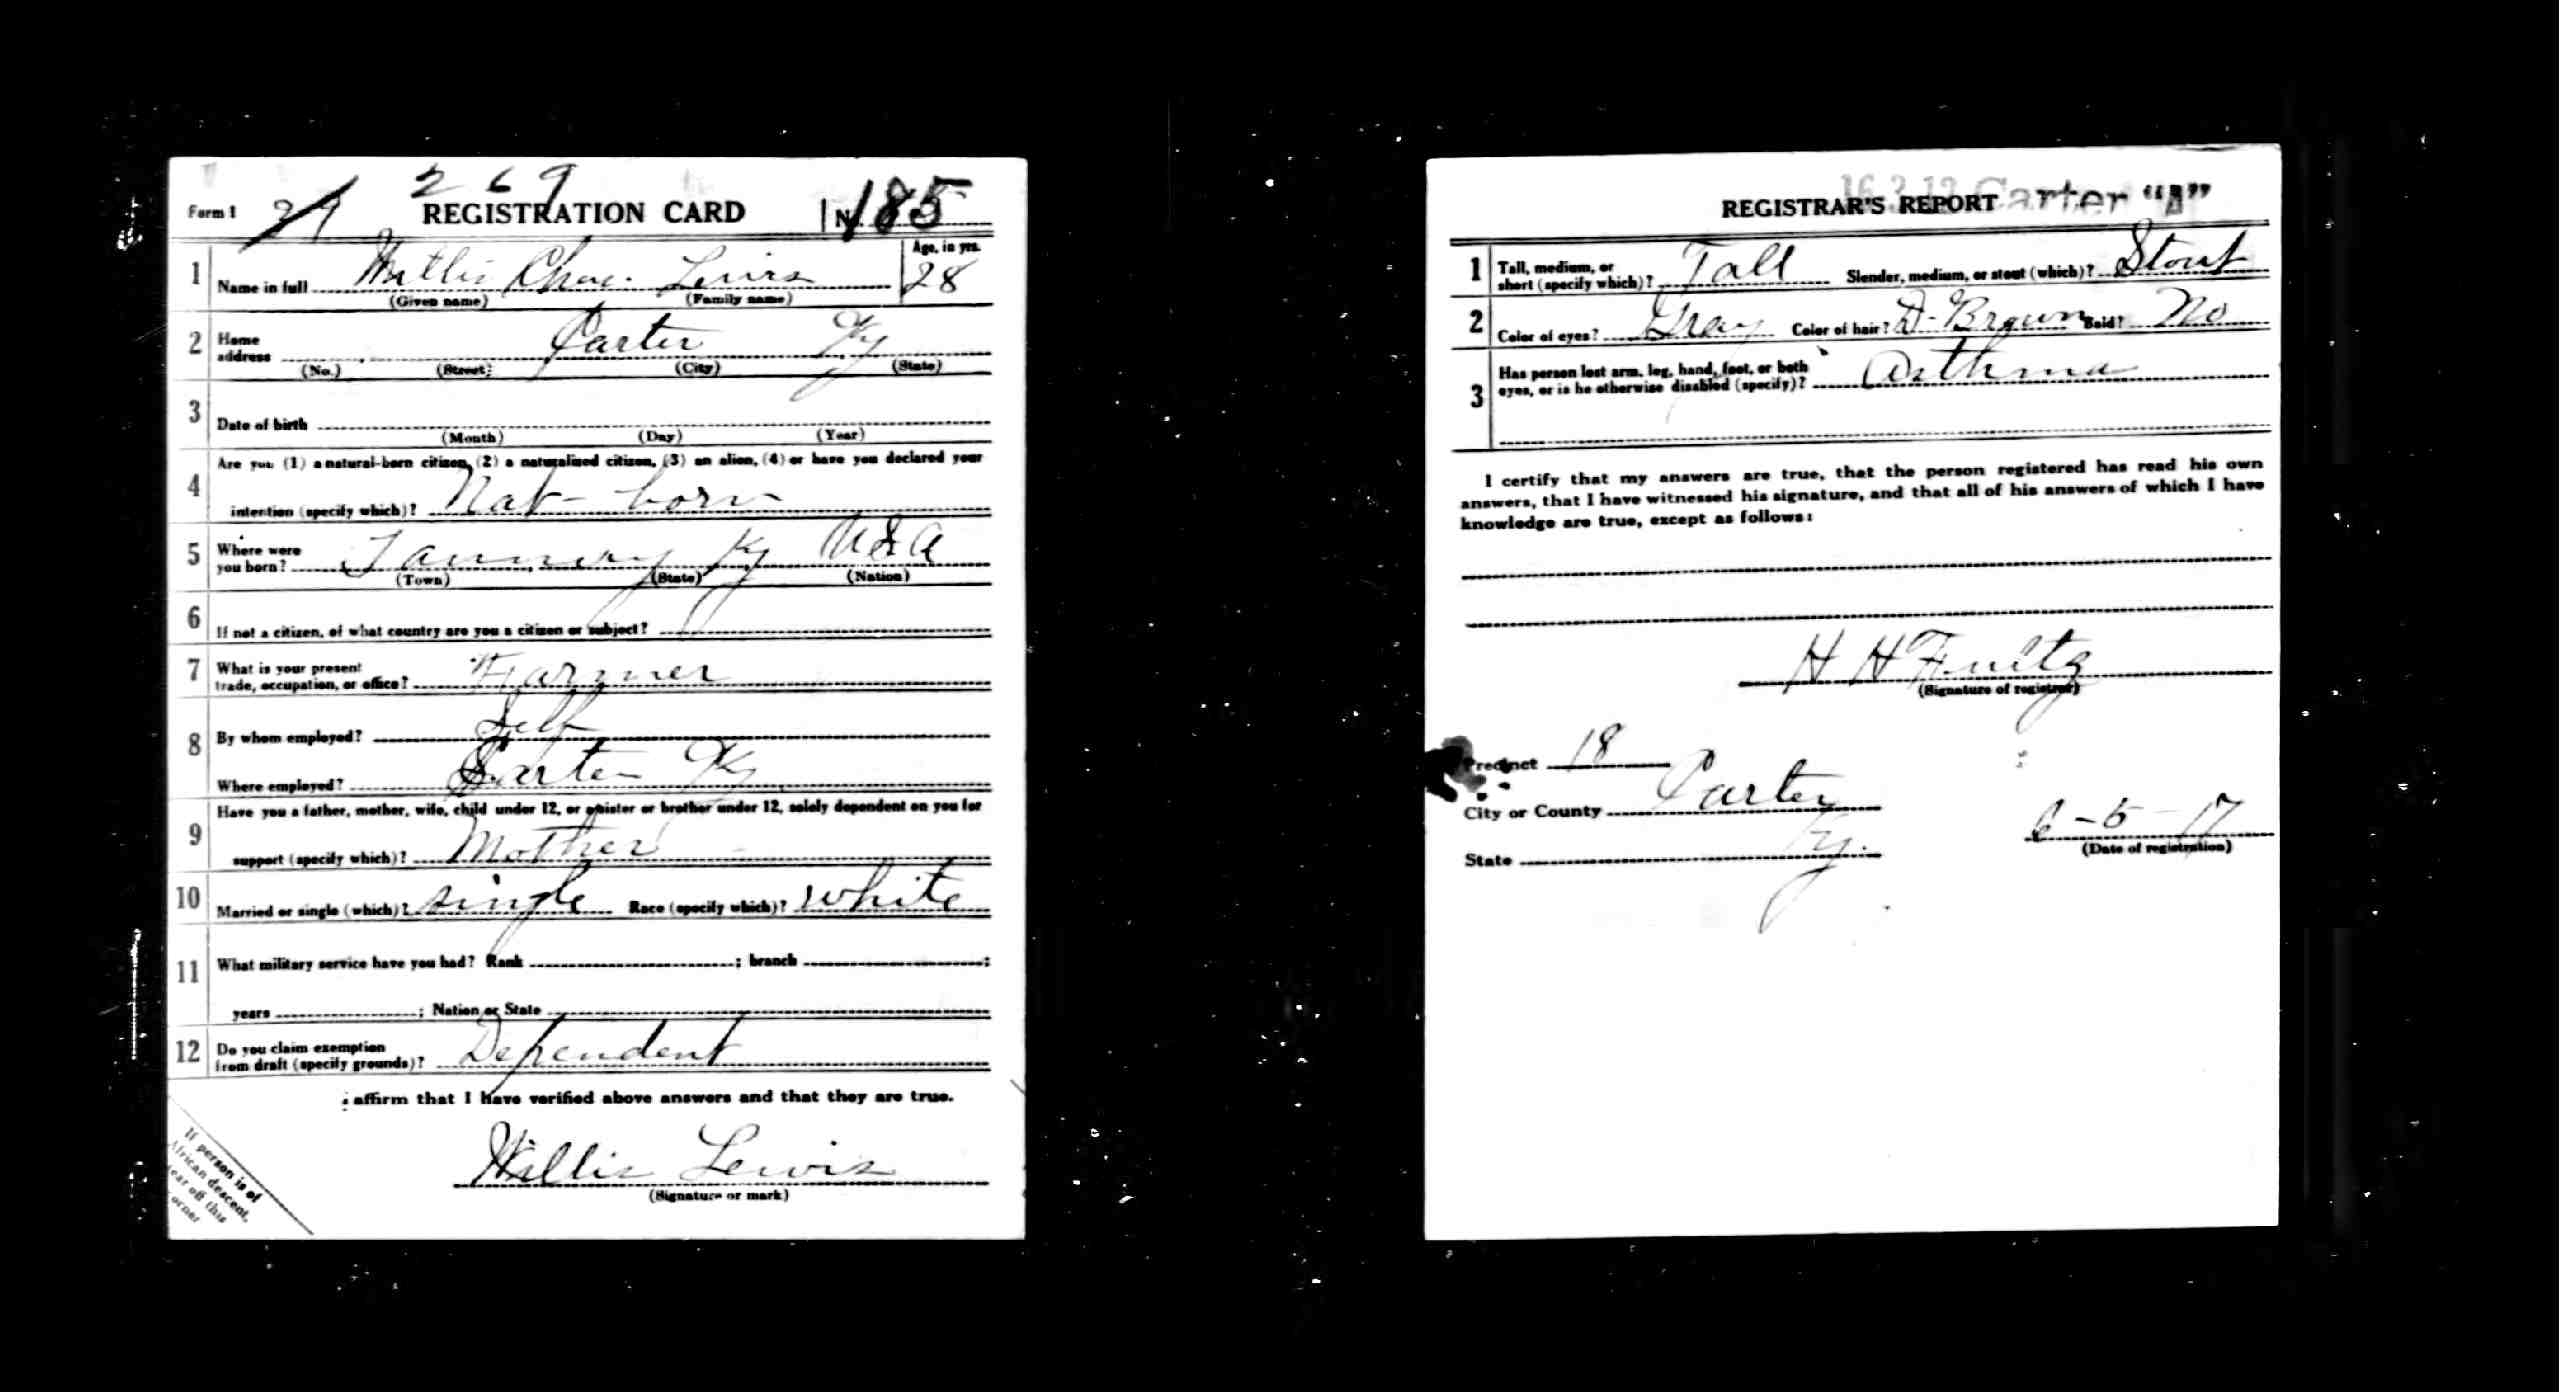 269
Form 1 29 REGISTRATION CARD No. 185
Age, in yrs.
1 Name in full Willis Chas. Lewis 28
(Given name) (Family name)
2 Home address Carter Ky
(No.) (Street) (City) (State)
3 Date of birth
(Month) (Day) (Year)
4 Are you (1) a natural-born citizen, (2) a naturalized citizen, (3) an alien, (4) or have you declared your
intention (specify which)? Nat-born
5 Where were you born? Tannery Ky USA
(Town) (State) (Nation)
6 If not a citizen, of what country are you a citizen or subject?
7 What is your present
trade, occupation, or office? Farmer
8 By whom employed? Self
Where employed? Carter Ky
9 Have you a father, mother, wife, child under 12, or a sister or brother under 12, solely dependent on you for
support (specify which)? Mother
10 Married or single (which)? single Race (specify which)? white
11 What military service have you had? Rank ; branch ;
years ; Nation or State
12 Do you claim exemption
from draft (specify grounds)? Dependent
I affirm that I have verified above answers and that they are true.
Willis Lewis
(Signature or mark)
If person is of
African descent,
tear off this
corner
16 3 12 Carter "A"
REGISTRAR'S REPORT
1 Tall, medium, or
short (specify which)? Tall Slender, medium, or stout (which)? Stout
2 Color of eyes? Gray Color of hair? D-Brown Bald? No
3 Has person lost arm, leg, hand, foot, or both
eyes, or is he otherwise disabled (specify)? Asthma
I certify that my answers are true, that the person registered has read his own
answers, that I have witnessed his signature, and that all of his answers of which I have
knowledge are true, except as follows:
H H Fultz
(Signature of registrar)
Precinct 18
City or County Carter
State Ky. 6-5-17
(Date of registration)